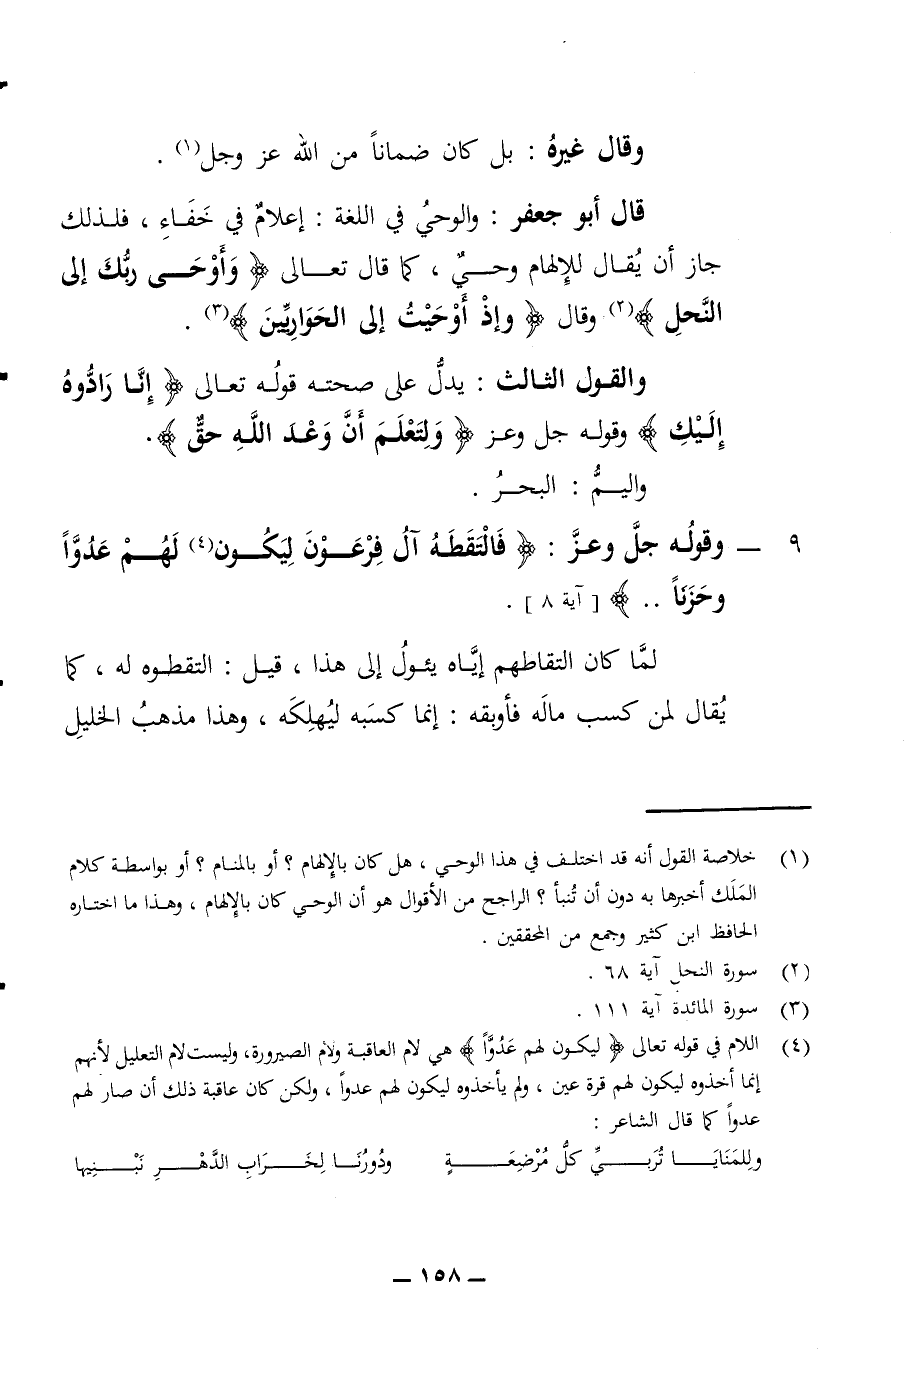 وقال غيرهُ : بل كان ضماناً من الله عز وجل(١) .
قال أبو جعفر : والوحيُ في اللغة : إعلامٌ في خَفَاءِ ، فلذلك
جاز أن يُقال للإلهام وحيٌ ، كما قال تعالى ﴿ وَأَوْحَى رَبُّكَ إلى
النَّحلِ ﴾(٢) وقال ﴿ وإذْ أَوْحَيْتُ إلى الحَوَارِيِّينَ ﴾(٣) .
والقول الثالث : يدلُّ على صحته قولُه تعالى ﴿ إنَّا رَادُّوهُ
إِلَيْكِ ﴾ وقوله جل وعز ﴿ وَلِتَعْلَمَ أَنَّ وَعْدَ اللَّهِ حقٌّ ﴾.
واليمُّ : البحرُ .
٩ ــ وقولُه جلَّ وعزَّ : ﴿ فَالْتَقَطَهُ آلُ فِرْعَوْنَ لِيَكُون(٤) لَهُمْ عَدُوَّاً
وحَزَنَاً .. ﴾ [ آية ٨ ] .
لمَّا كان التقاطهم إيَّاه يئولُ إلى هذا ، قيل : التقطوه له ، كما
يُقال لمن كسب مالَه فأوبقه : إنما كسَبه ليُهلِكَه ، وهذا مذهبُ الخليلِ
(١) خلاصة القول أنه قد اختلف في هذا الوحي ، هل كان بالإلهام ؟ أو بالمنام ؟ أو بواسطة كلام
المَلَك أخبرها به دون أن تُنبأ ؟ الراجح من الأقوال هو أن الوحي كان بالإلهام ، وهذا ما اختاره
الحافظ ابن كثير وجمع من المحققين .
(٢) سورة النحل آية ٦٨ .
(٣) سورة المائدة آية ١١١ .
(٤) اللام في قوله تعالى ﴿ ليكون لهم عَدُوَّاً ﴾ هي لام العاقبة ولام الصيرورة، وليست لام التعليل لأنهم
إنما أخذوه ليكون لهم قرة عين ، ولم يأخذوه ليكون لهم عدواً ، ولكن كان عاقبة ذلك أن صار لهم
عدواً كما قال الشاعر :
ولِلمَنَايَا تُرَبِّي كلُّ مُرْضِعَةٍ ودُورُنَا لِخَرَابِ الدَّهْرِ نَبْنِيها
ــ ١٥٨ ــ